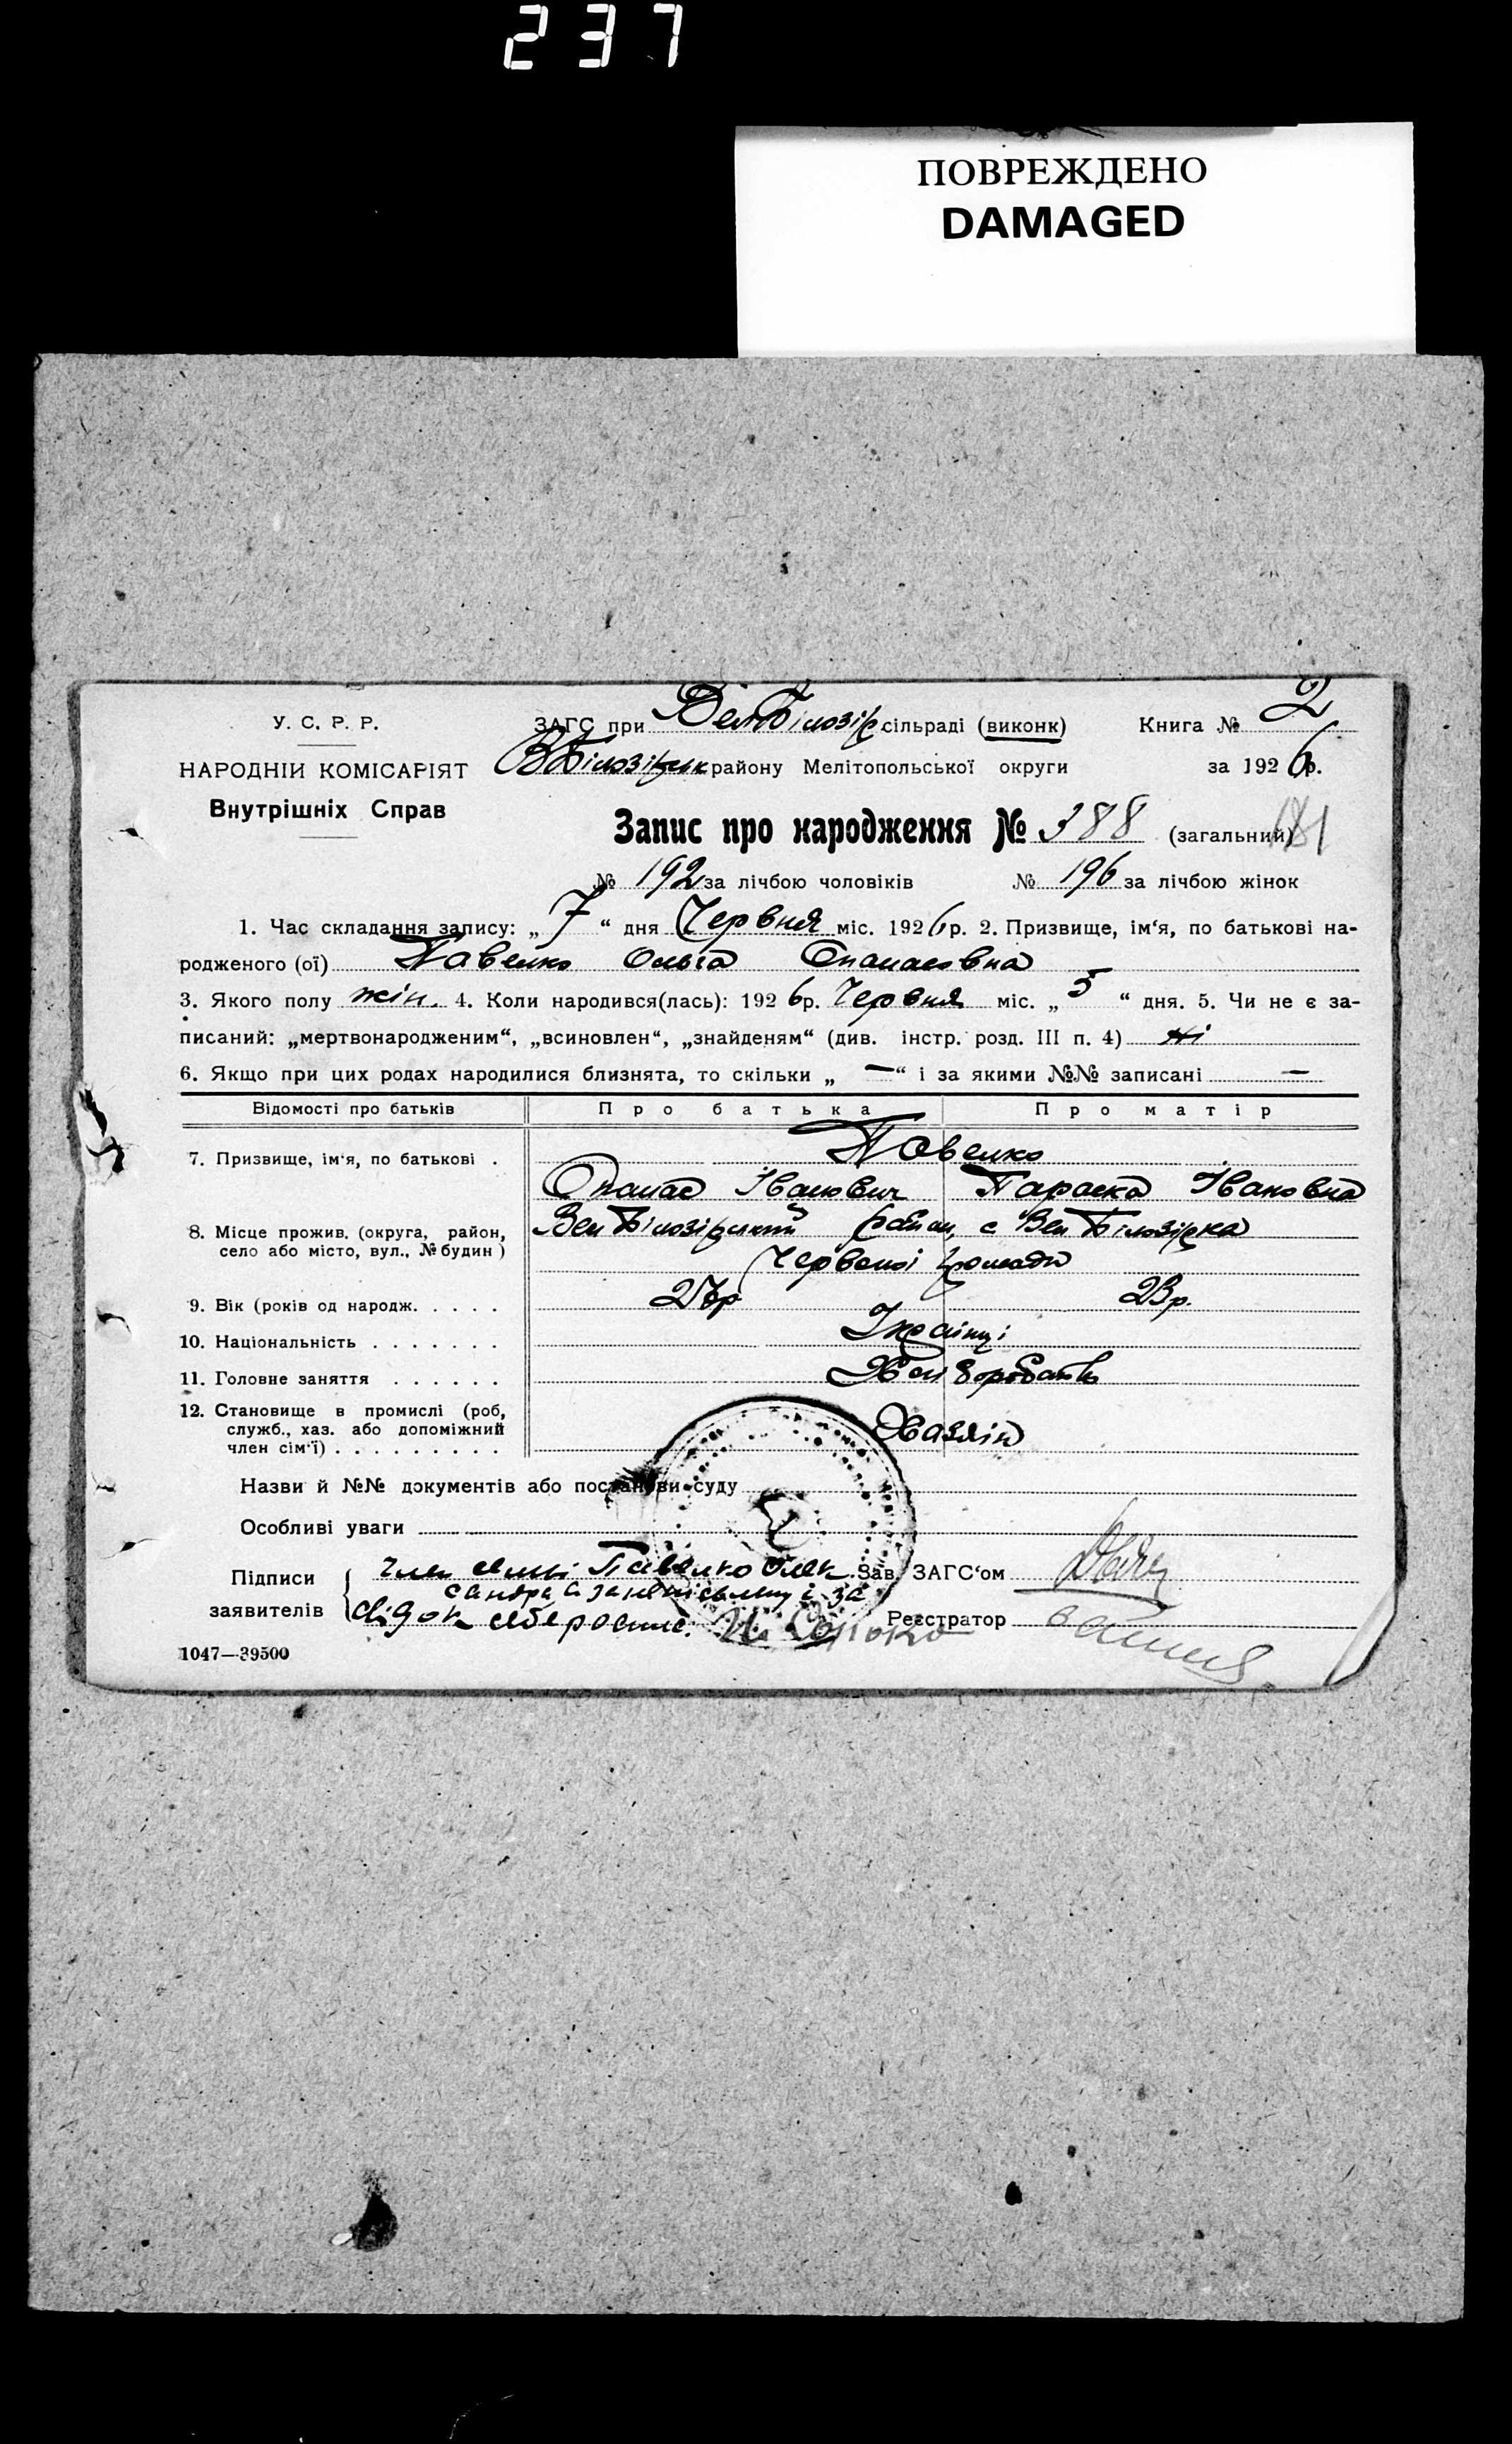 237
ПОВРЕЖДЕНО
DAMAGED
У. С. Р. Р.
ЗАГС при ВелБілозір сільраді (виконк) Книга № 2
НАРОДНІИ КОМІСАРІЯТ
ВБілозірськ району Мелітопольської округи за 1926 р.
Внутрішніх Справ
Запис про народження № 388 (загальний) 181
№ 192 за лічбою чоловіків № 196 за лічбою жінок
1. Час складання запису: „7“ дня Червня міс. 1926 р. 2. Призвище, ім‘я, по батькові на-
родженого (ої) Павелко Ольга Опанасовна
3. Якого полу жін. 4. Коли народився(лась): 1926 р. Червня міс. „5“ дня. 5. Чи не є за-
писаний: „мертвонародженим“, „всиновлен“, „знайденям“ (див. інстр. розд. III п. 4) ні
6. Якщо при цих родах народилися близнята, то скільки „—“ і за якими №№ записані —
Відомості про батьків Про батька Про матір
7. Призвище, ім‘я, по батькові . Павелко
Опанас Іванович Параска Івановна
8. Місце прожив. (округа, район, Вел Білозірський район, с Вел Білозірка
село або місто, вул., № будин)
Червоної громади
9. Вік (років од народж. . . . . 25р 23р.
10. Національність . . . . . . . Українці
11. Головне заняття . . . . . . Хліборобств
12. Становище в промислі (роб,
служб., хаз. або допоміжний Хазяін
член сім‘ї) . . . . . . . . .
Назви й №№ документів або постанови суду
Особливі уваги
Підписи член сімьі Павелко Олек Зав. ЗАГС‘ом
сандра а за неписьмену і за
заявителів свідок себе росписался Реєстратор
1047—39500